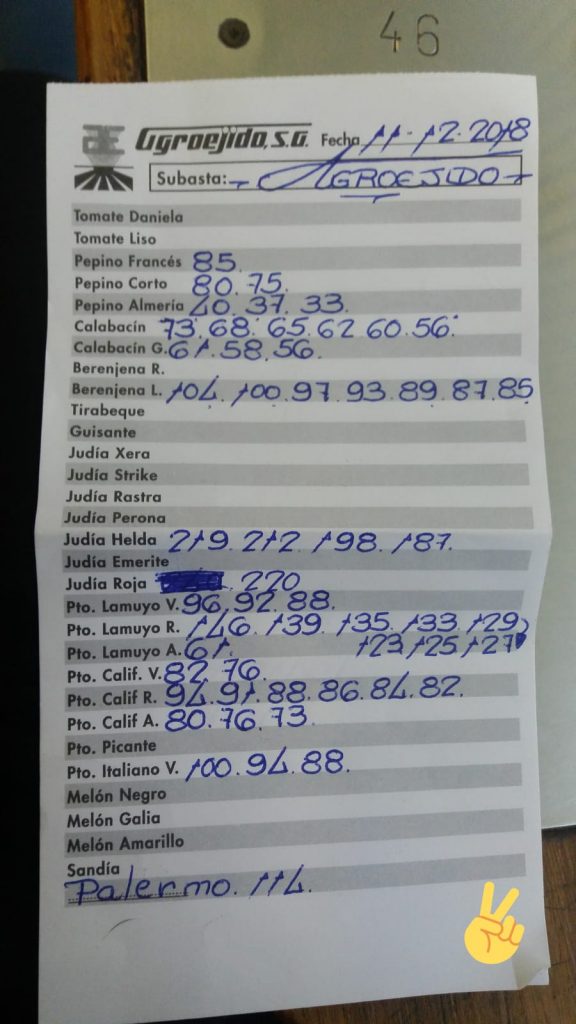 46
Agroejido, S.A. Fecha 11-12-2018
Subasta:- AGROEJIDO-
Tomate Daniela
Tomate Liso
Pepino Francés 85.
Pepino Corto 80.75.
Pepino Almería 40.37.33.
Calabacín 73.68.65.62.60.56.
Calabacín G. 61.58.56.
Berenjena R.
Berenjena L. 104.100.97.93.89.87.85
Tirabeque
Guisante
Judía Xera
Judía Strike
Judía Rastra
Judía Perona
Judía Helda 219.212.198.187.
Judía Emerite
Judía Roja 220
Pto. Lamuyo V. 96.92.88.
Pto. Lamuyo R. 146.139.135.133.129.
Pto. Lamuyo A. 61. 123.125.127
Pto. Calif. V. 82.76.
Pto. Calif R. 94.91.88.86.84.82.
Pto. Calif A. 80.76.73.
Pto. Picante
Pto. Italiano V. 100.94.88.
Melón Negro
Melón Galia
Melón Amarillo
Sandía
Palermo. 114.